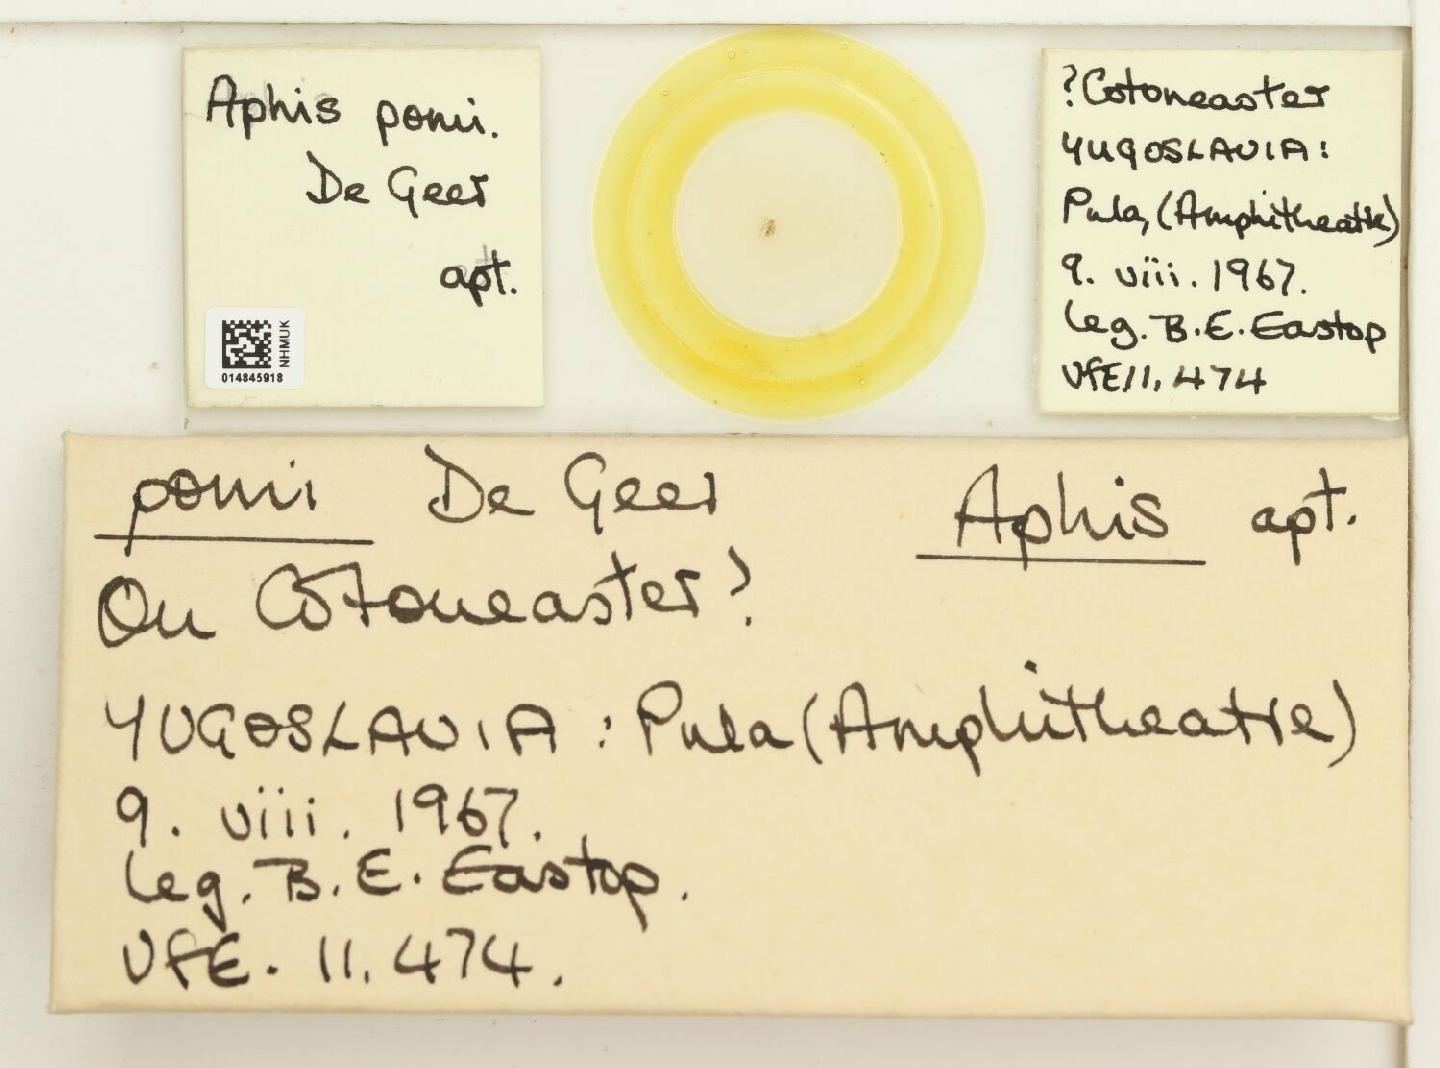 Aphis pomi.
De Geer
apt.
NHMUK
014845918
?Cotoneaster
YUGOSLAVIA:
Pula, (Amphitheatre)
9. viii. 1967.
leg. B. E. Eastop
VfE 11, 474
pomi De Geer Aphis apt.
On Cotoneaster?
YUGOSLAVIA: Pula (Amphitheatre)
9. viii. 1967.
leg. B. E. Eastop.
VfE. 11. 474.